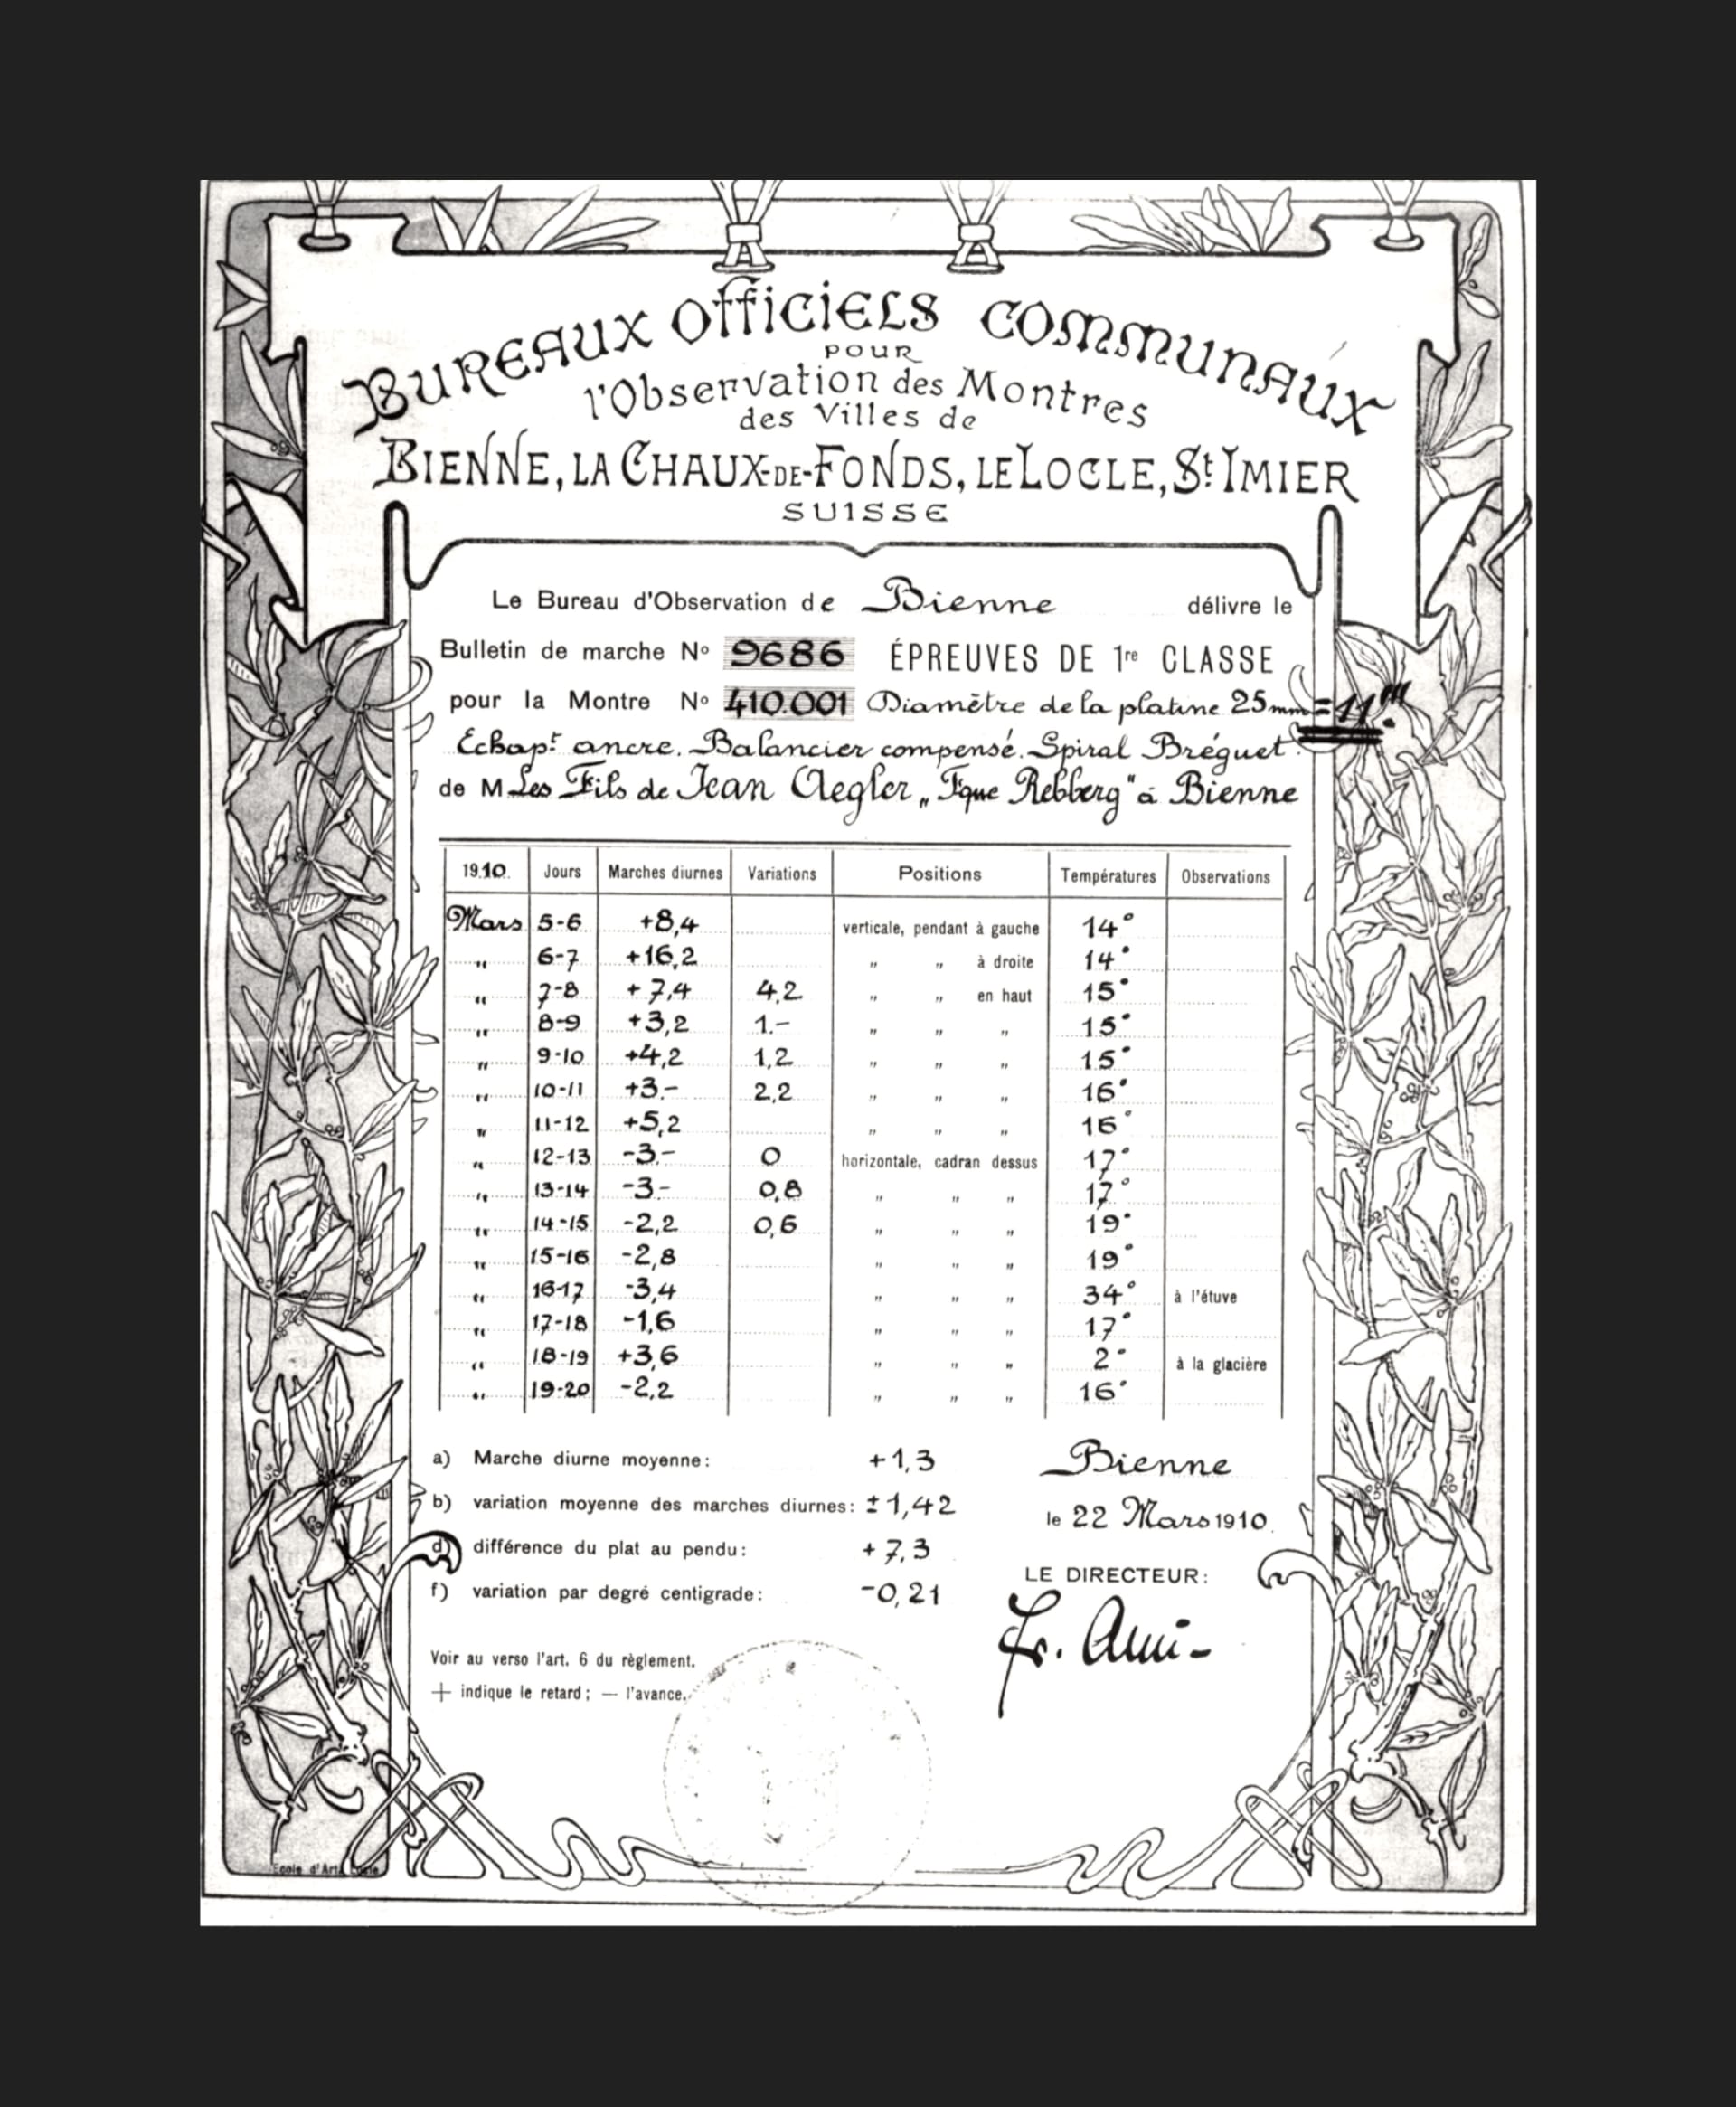 BUREAUX OFFICIELS COMMUNAUX
POUR
l'Observation des Montres
des Villes de
BIENNE, LA CHAUX-DE-FONDS, LE LOCLE, St IMIER
SUISSE
Le Bureau d'Observation de Bienne délivre le
Bulletin de marche No 9686 ÉPREUVES DE 1re CLASSE
pour la Montre No 410.001 Diamètre de la platine 25mm=11'''
Echapt ancre. Balancier compensé. Spiral Bréguet.
de M Les Fils de Jean Aegler „Fque Rebberg" à Bienne
1910. Jours Marches diurnes Variations Positions Températures Observations
Mars 5-6 +8,4 verticale, pendant à gauche 14°
" 6-7 +16,2 " " à droite 14°
" 7-8 +7,4 4,2 " " en haut 15°
" 8-9 +3,2 1.- " " " 15°
" 9-10 +4,2 1,2 " " " 15°
" 10-11 +3.- 2,2 " " " 16°
" 11-12 +5,2 " " " 16°
" 12-13 -3.- 0 horizontale, cadran dessus 17°
" 13-14 -3- 0,8 " " " 17°
" 14-15 -2,2 0,6 " " " 19°
" 15-16 -2,8 " " " 19°
" 16-17 -3,4 " " " 34° à l'étuve
" 17-18 -1,6 " " " 17°
" 18-19 +3,6 " " " 2° à la glacière
" 19-20 -2,2 " " " 16°
a) Marche diurne moyenne: +1,3
b) variation moyenne des marches diurnes: ±1,42
d) différence du plat au pendu: +7,3
f) variation par degré centigrade: -0,21
Bienne
le 22 Mars 1910.
LE DIRECTEUR:
Voir au verso l'art. 6 du règlement.
+ indique le retard; — l'avance.
Ecole d'Art Locle